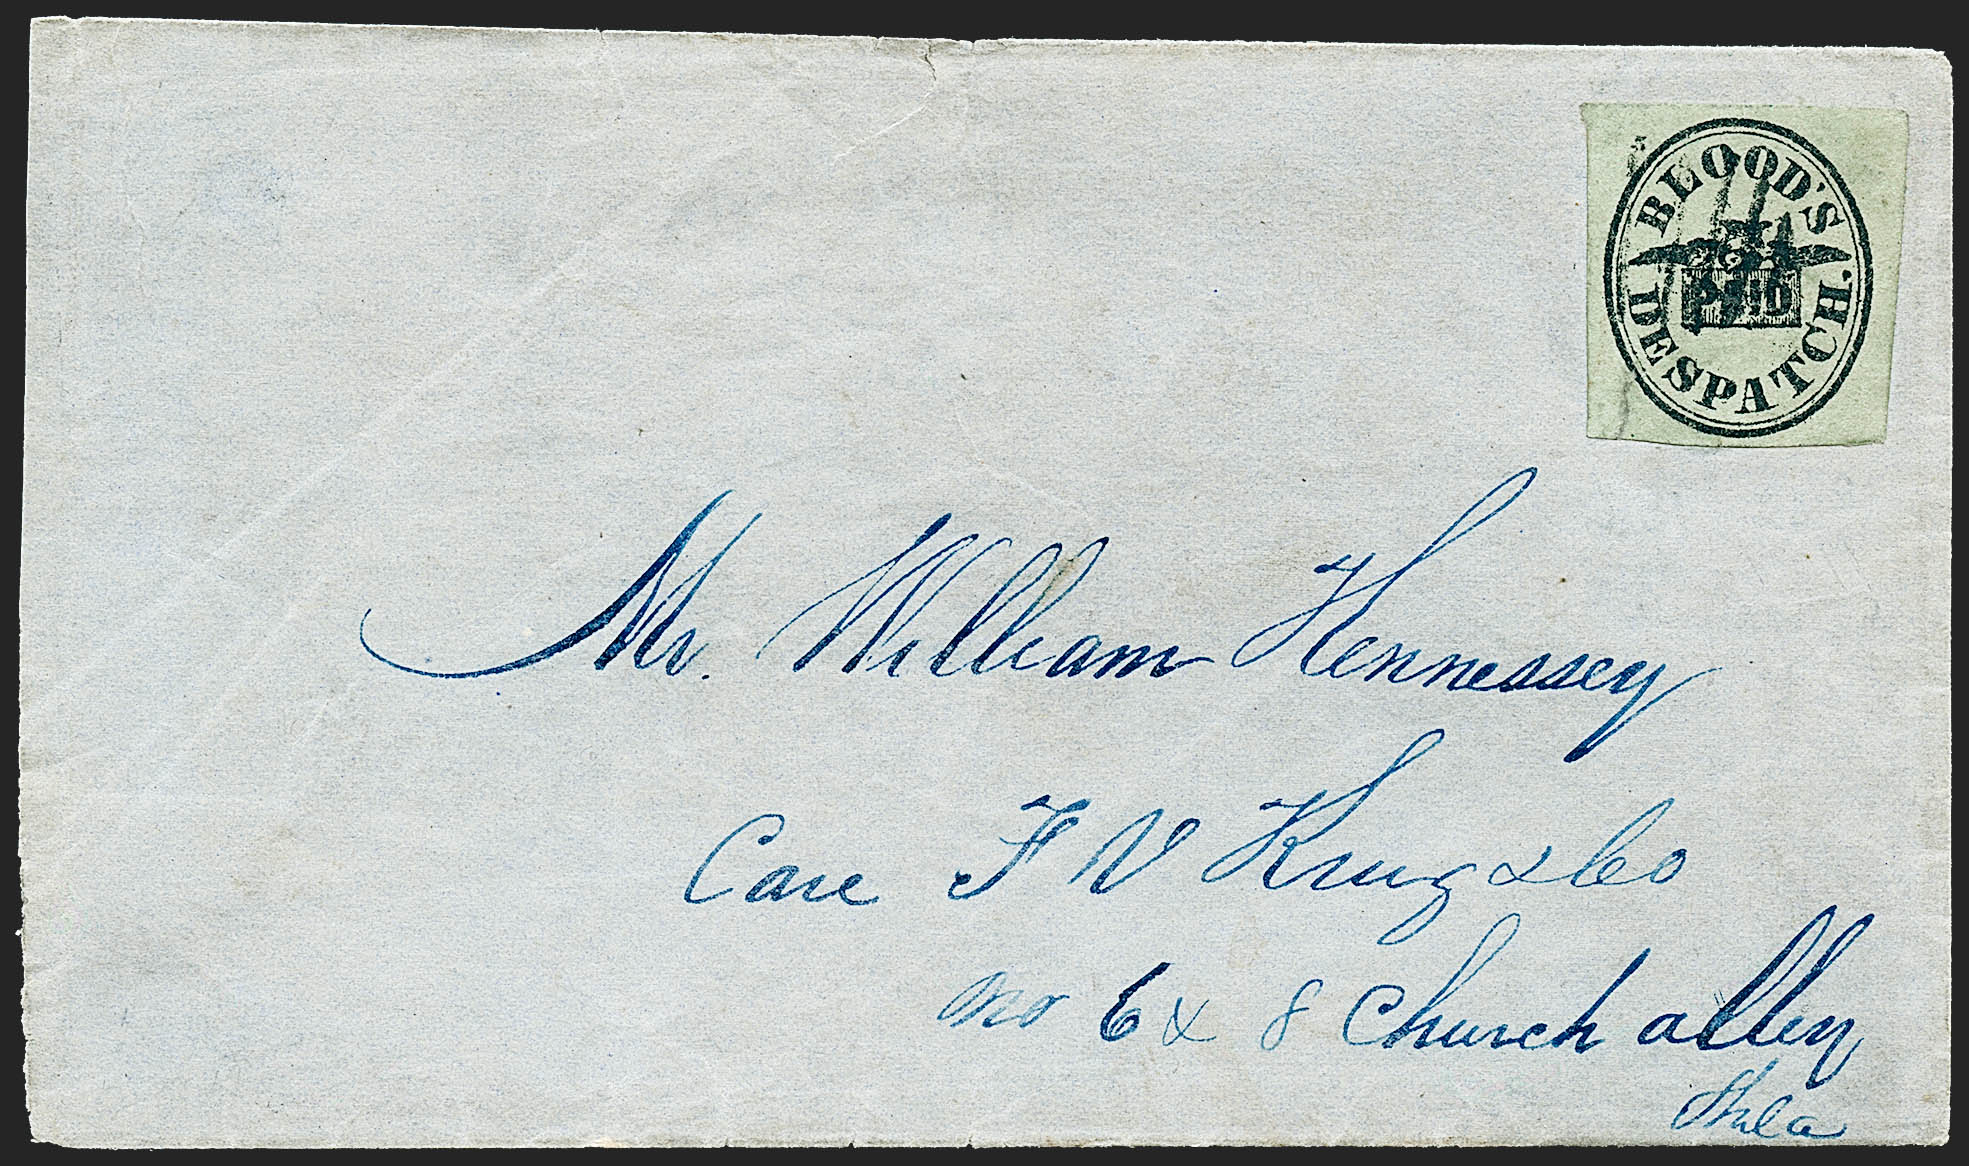 BLOOD'S
PAID
DESPATCH.
Mr. William Hennessey
Care F V Krug & Co
No 6 & 8 Church alley
Phila